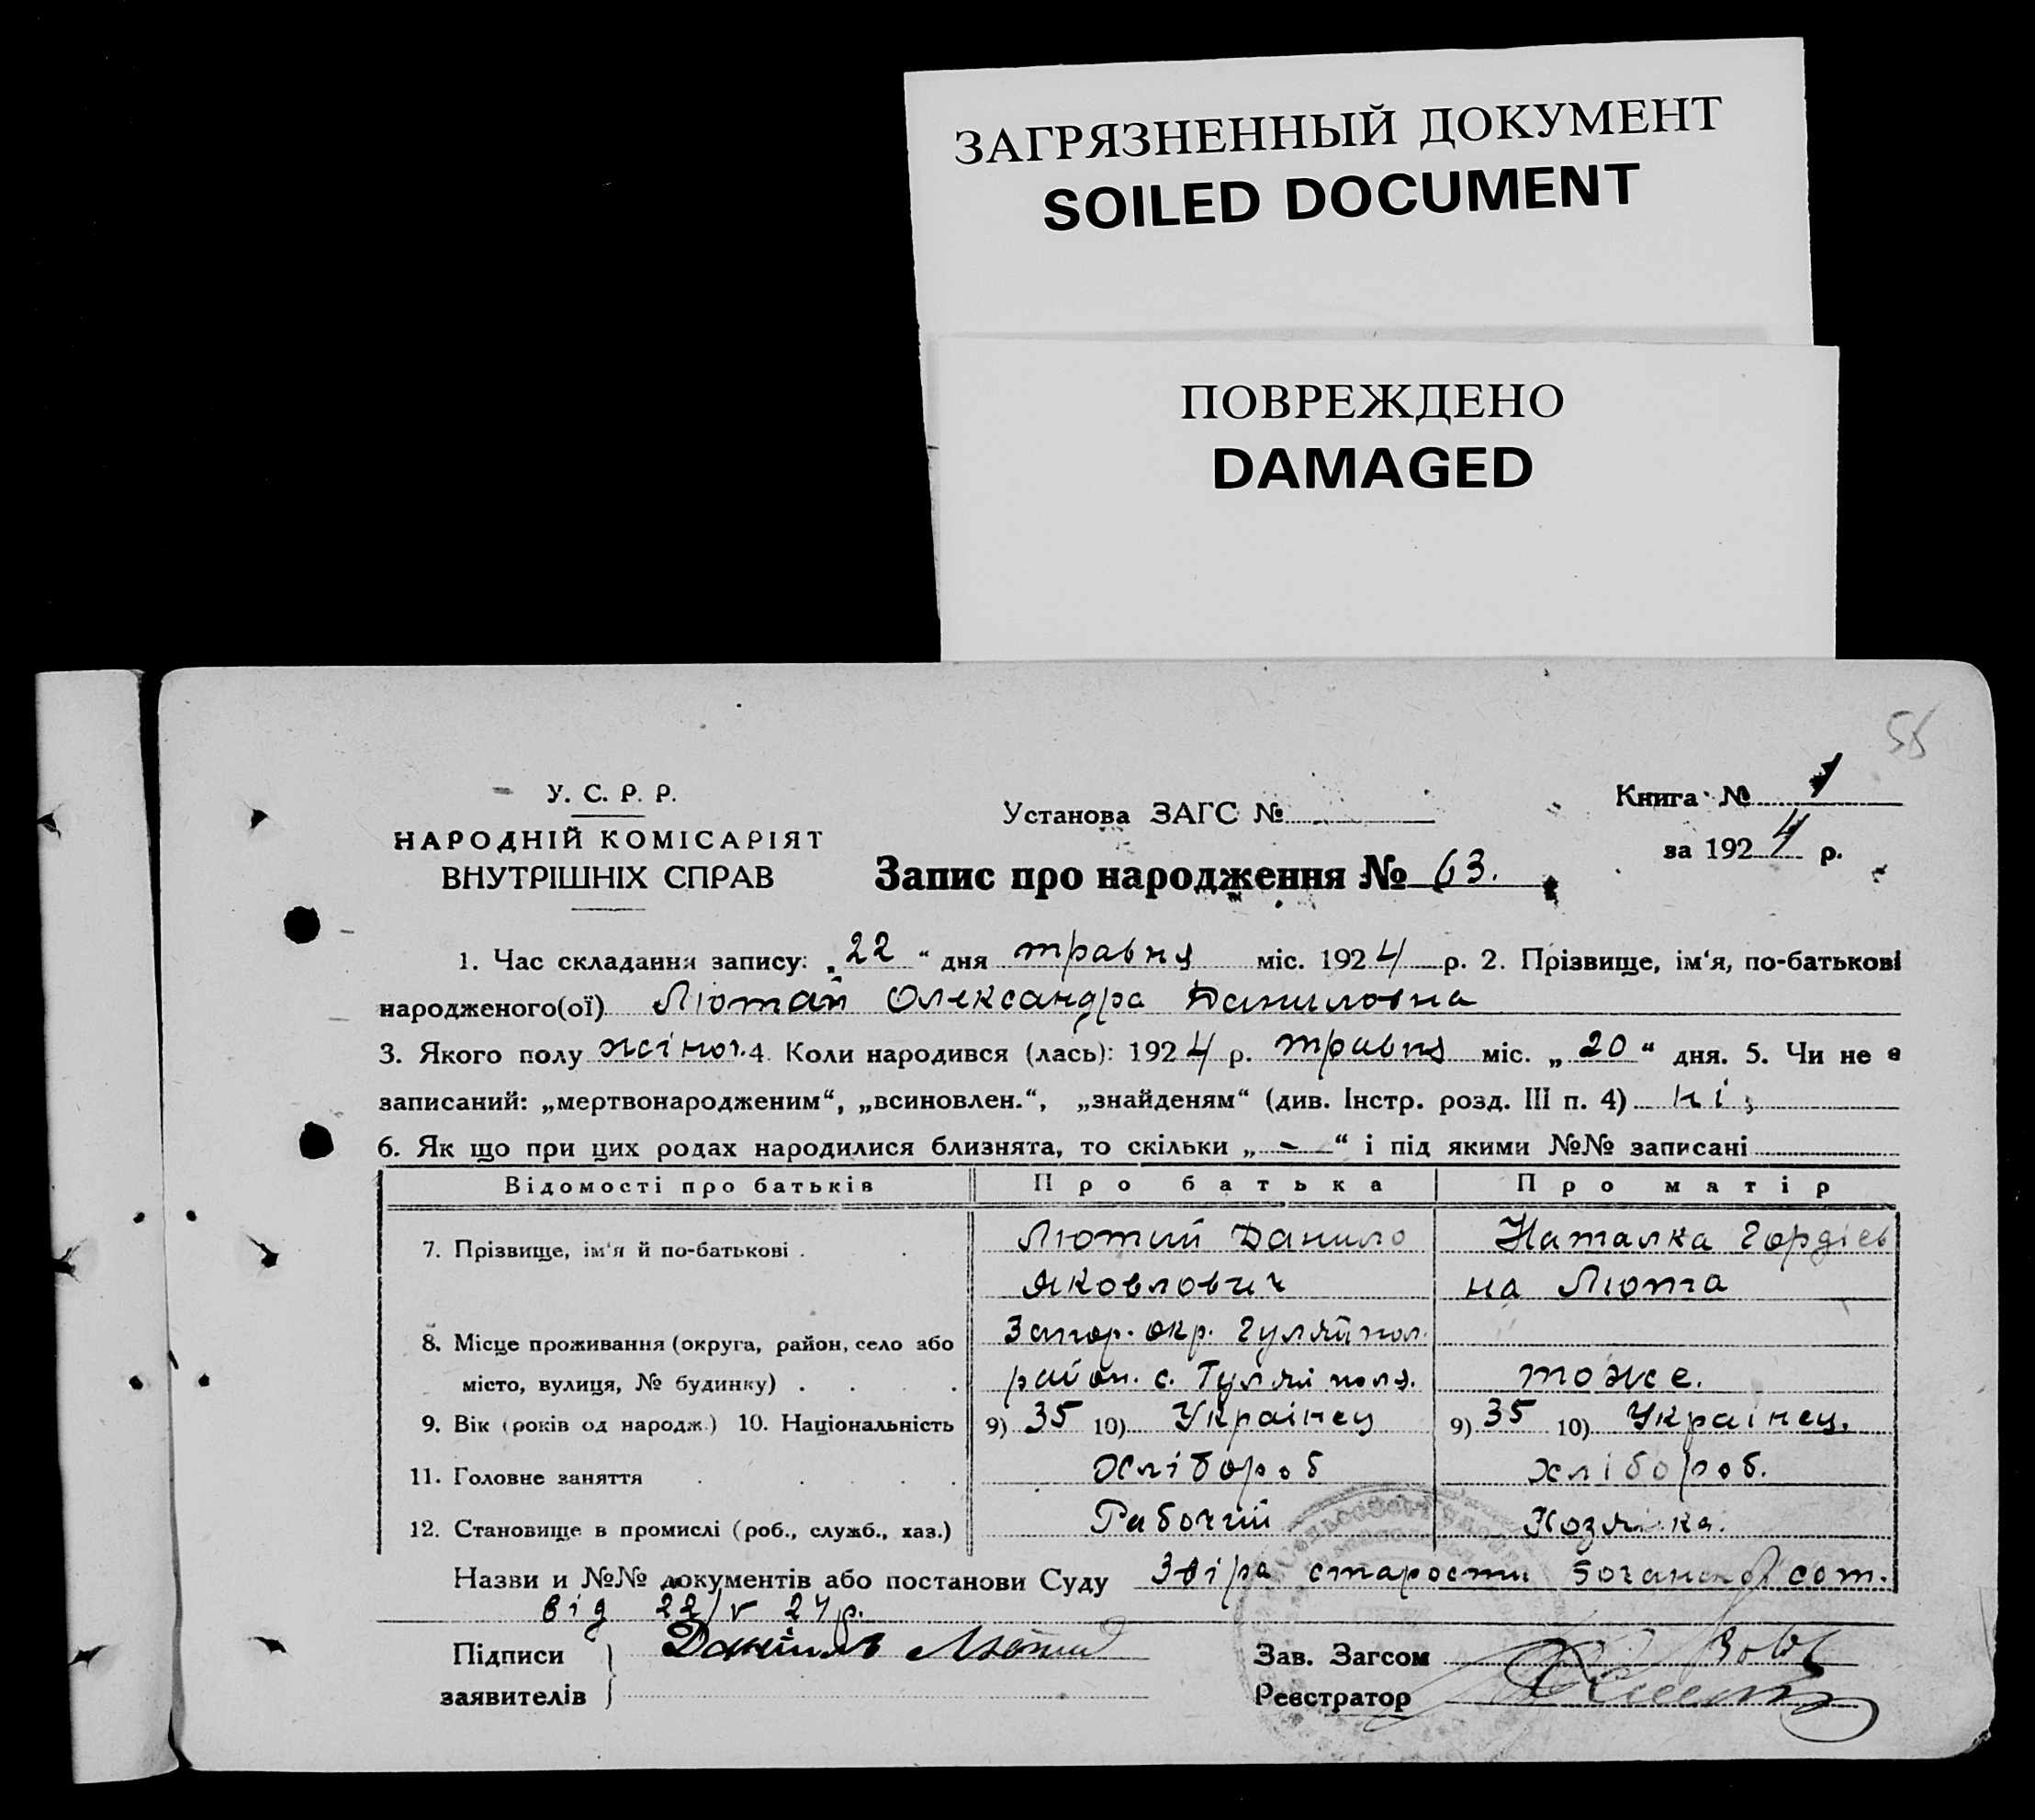 ЗАГРЯЗНЕННЫЙ ДОКУМЕНТ
SOILED DOCUMENT
ПОВРЕЖДЕНО
DAMAGED
У. С. Р. Р.
НАРОДНІЙ КОМІСАРІЯТ
ВНУТРІШНІХ СПРАВ
Установа ЗАГС №
Книга № 1
за 1924 р.
Запис про народження № 63.
1. Час складання запису: „22“ дня травня міс. 1924 р. 2. Прізвище, ім‘я, по-батькові
народженого(ої) Лютай Олександра Даниловна
3. Якого полу жіноч. 4. Коли народився (лась): 1924 р. травня міс. „20“ дня. 5. Чи не є
записаний: „мертвонародженим“, „всиновлен.“, „знайденям“ (див. Інстр. розд. III п. 4) ні,
6. Як що при цих родах народилися близнята, то скільки „-“ і під якими №№ записані
Відомості про батьків Про батька Про матір
7. Прізвище, ім‘я й по-батькові . . Лютий Данило Наталка Гордіев
Яковлович на Люта
Запор. окр. Гуляйпол.
8. Місце проживання (округа, район, село або
місто, вулиця, № будинку) . . . . район. с. Гуляй поля. тоже.
9. Вік (років од народж.) 10. Національність 9) 35 10) Украінец 9) 35 10) Украінец.
11. Головне заняття . . . . Хлібороб хлібороб.
12. Становище в промислі (роб., служб., хаз.) Рабочий Хозяйка.
Назви и №№ документів або постанови Суду старости сот.
від 22/V 24 р.
Підписи
заявителів
Данііл Лютий
Зав. Загсом
Реєстратор